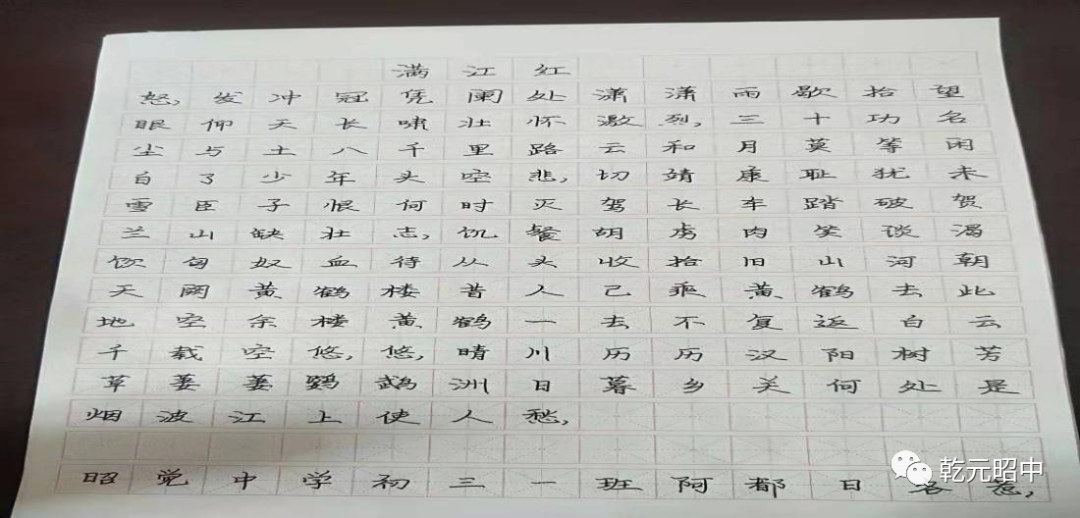 满江红
怒发冲冠凭阑处潇潇雨歇抬望
眼仰天长啸壮怀激烈三十功名
尘与土八千里路云和月莫等闲
白了少年头空悲切靖康耻犹未
雪臣子恨何时灭驾长车踏破贺
兰山缺壮志饥餐胡虏肉笑谈渴
饮匈奴血待从头收拾旧山河朝
天阙黄鹤楼昔人已乘黄鹤去此
地空余楼黄鹤一去不复返白云
千载空悠悠晴川历历汉阳树芳
草萋萋鹦鹉洲日暮乡关何处是
烟波江上使人愁
昭觉中学初三一班阿都日
乾元昭中